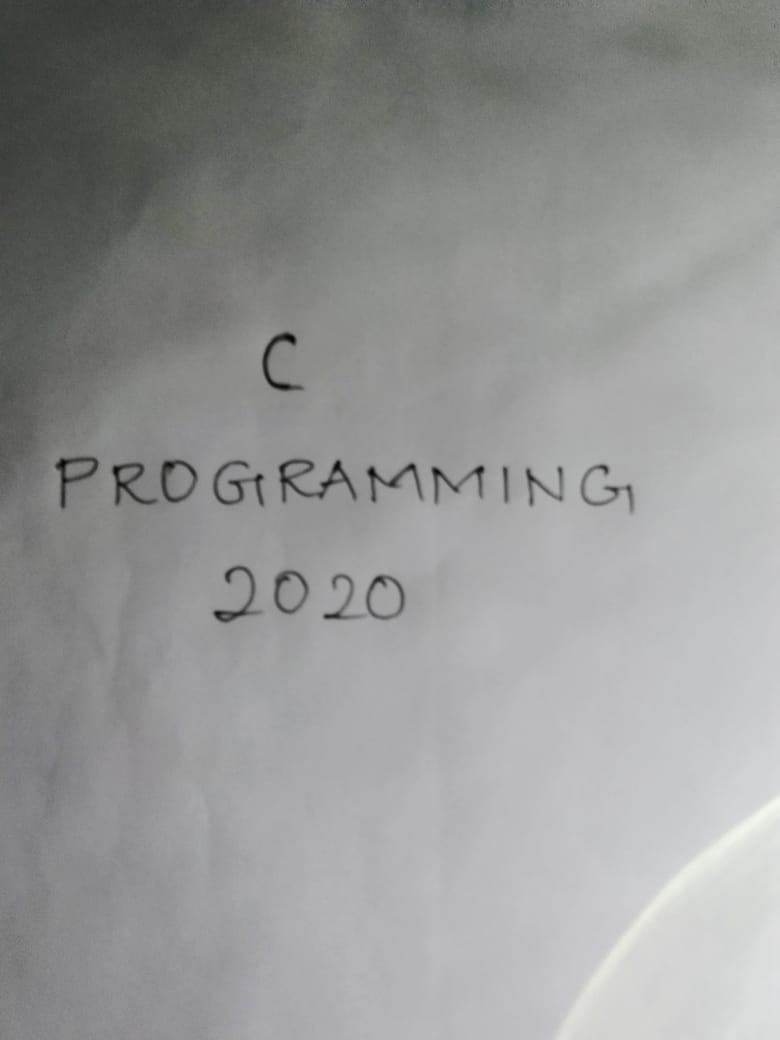 C
PROGRAMMING
2020